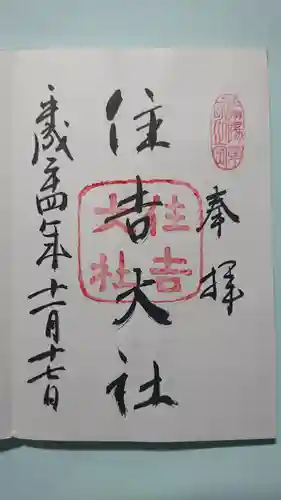 奉拝
住吉大社
住吉
大社
平成二十四年十一月十七日